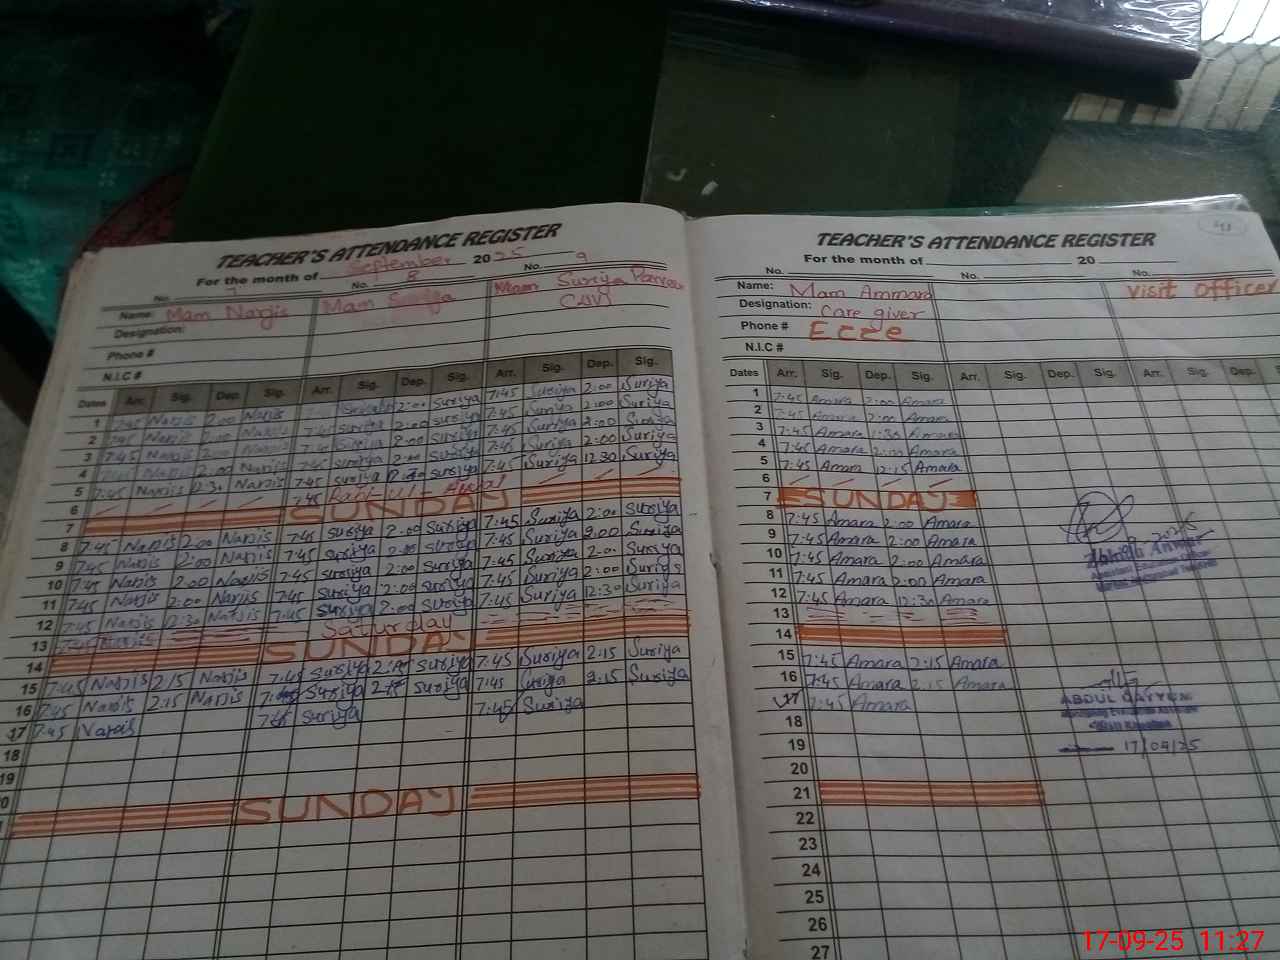 TEACHER'S ATTENDANCE REGISTER
For the month of September 2025
No. 7 No. 8 No. 9
Name: Mam Narjis Mam Suriya Mam Suriya Parveen
Designation:
Phone #
N.I.C #
Dates Arr. Sig. Dep. Sig. Arr. Sig. Dep. Sig. Arr. Sig. Dep. Sig.
1 7:45 Narjis 2:00 Narjis 2:00 Suriya 7:45 Suriya 2:00 Suriya
2 7:45 Narjis 2:00 Narjis 7:45 Suriya 2:00 Suriya 7:45 Suriya 2:00 Suriya
3 7:45 Narjis 2:00 Narjis 7:45 Suriya 2:00 Suriya 7:45 Suriya 2:00 Suriya
4 7:45 Narjis 2:00 Narjis 7:45 Suriya 2:00 Suriya 7:45 Suriya 2:00 Suriya
5 7:45 Narjis 12:30 Narjis 7:45 Suriya 12:30 Suriya 7:45 Suriya 12:30 Suriya
6 7:45 Rabi-ul-Awal
7 SUNDAY
8 7:45 Narjis 2:00 Narjis 7:45 Suriya 2:00 Suriya 7:45 Suriya 2:00 Suriya
9 7:45 Narjis 2:00 Narjis 7:45 Suriya 2:00 Suriya 7:45 Suriya 2:00 Suriya
10 7:45 Narjis 2:00 Narjis 7:45 Suriya 2:00 Suriya 7:45 Suriya 2:00 Suriya
11 7:45 Narjis 2:00 Narjis 7:45 Suriya 2:00 Suriya 7:45 Suriya 2:00 Suriya
12 7:45 Narjis 12:30 Narjis 7:45 Suriya 2:00 Suriya 7:45 Suriya 12:30 Suriya
13 7:45 Narjis Saturday
14 SUNDAY
15 7:45 Narjis 2:15 Narjis 7:45 Suriya 2:15 Suriya 7:45 Suriya 2:15 Suriya
16 7:45 Narjis 2:15 Narjis Suriya 2:15 Suriya 7:45 Suriya 2:15 Suriya
17 7:45 Narjis 7:45 Suriya 7:45 Suriya
18
19
20
SUNDAY
TEACHER'S ATTENDANCE REGISTER
For the month of 20
No. No. No.
Name: Mam Ammara Visit Officer
Designation: Care giver
Phone # Ecce
N.I.C #
Dates Arr. Sig. Dep. Sig. Arr. Sig. Dep. Sig. Arr. Sig. Dep.
1 7:45 Amara 2:00 Amara
2 7:45 Amara 2:00 Amara
3 7:45 Amara 1:30 Amara
4 7:45 Amara 2:00 Amara
5 7:45 Amara 12:15 Amara
6
7 SUNDAY
8 7:45 Amara 2:00 Amara
9 7:45 Amara 2:00 Amara
10 7:45 Amara 2:00 Amara
11 7:45 Amara 2:00 Amara
12 7:45 Amara 12:30 Amara
13
14
15 7:45 Amara 2:15 Amara
16 7:45 Amara 2:15 Amara
17 7:45 Amara
ABDUL QAYYUM
18
19 17/09/25
20
21
22
23
24
25
26
27
17-09-25 11:27